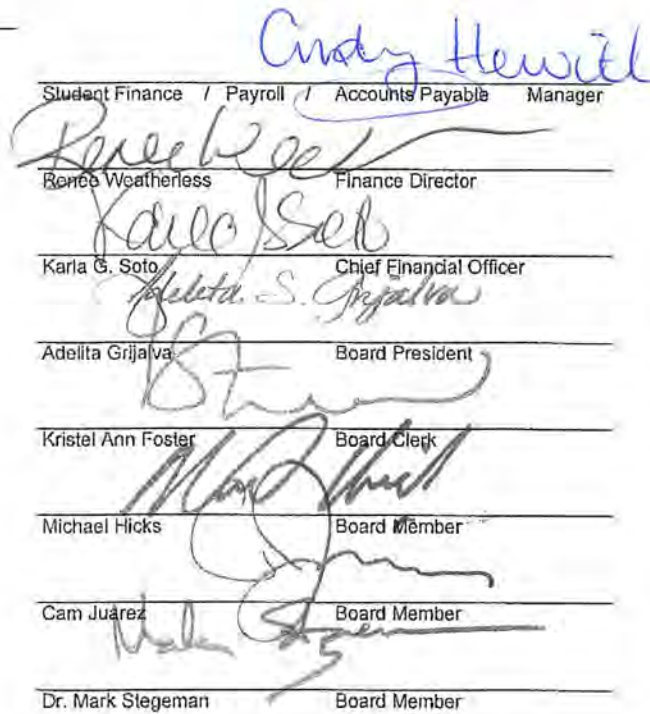 Cindy Hewitt
Student Finance / Payroll / Accounts Payable Manager
Renee Weatherless Finance Director
Karla G. Soto
Karla G. Soto Chief Financial Officer
Adelita S. Grijalva
Adelita Grijalva Board President
Kristel Ann Foster Board Clerk
Michael Hicks Board Member
Cam Juárez Board Member
Dr. Mark Stegeman Board Member